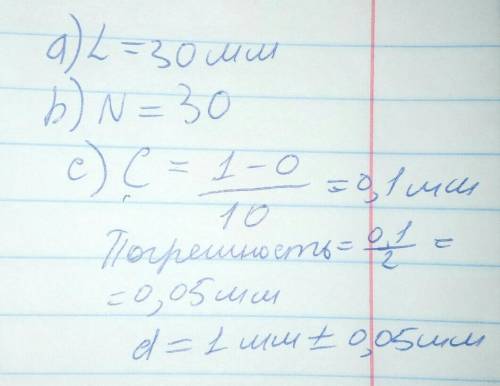 a) L = 30 мм
b) N = 30
c) C = \frac{1-0}{10} = 0,1 мм
Погрешность = \frac{0,1}{2} =
= 0,05 мм
d = 1 мм ± 0,05 мм